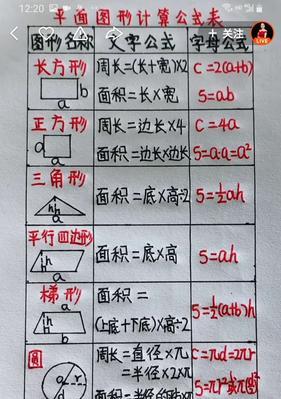 12:20
75
平面图形计算公式表
关注
LIVE
图形名称 文字公式 字母公式
长方形 周长=(长+宽)×2 C=2(a+b)
b
a
面积=长×宽 S=ab
正方形 周长=边长×4 C=4a
a
a
面积=边长×边长 S=a·a=a²
三角形
h
a
面积=底×高÷2 S=½ah
平行四边形
h
a
面积=底×高 S=ah
梯形 面积=
a
h
b
(上底+下底)×高÷2 S=½(a+b)h
圆 周长=直径×π C=πd=2πr
=半径×2×π
d r
S=πr²或π